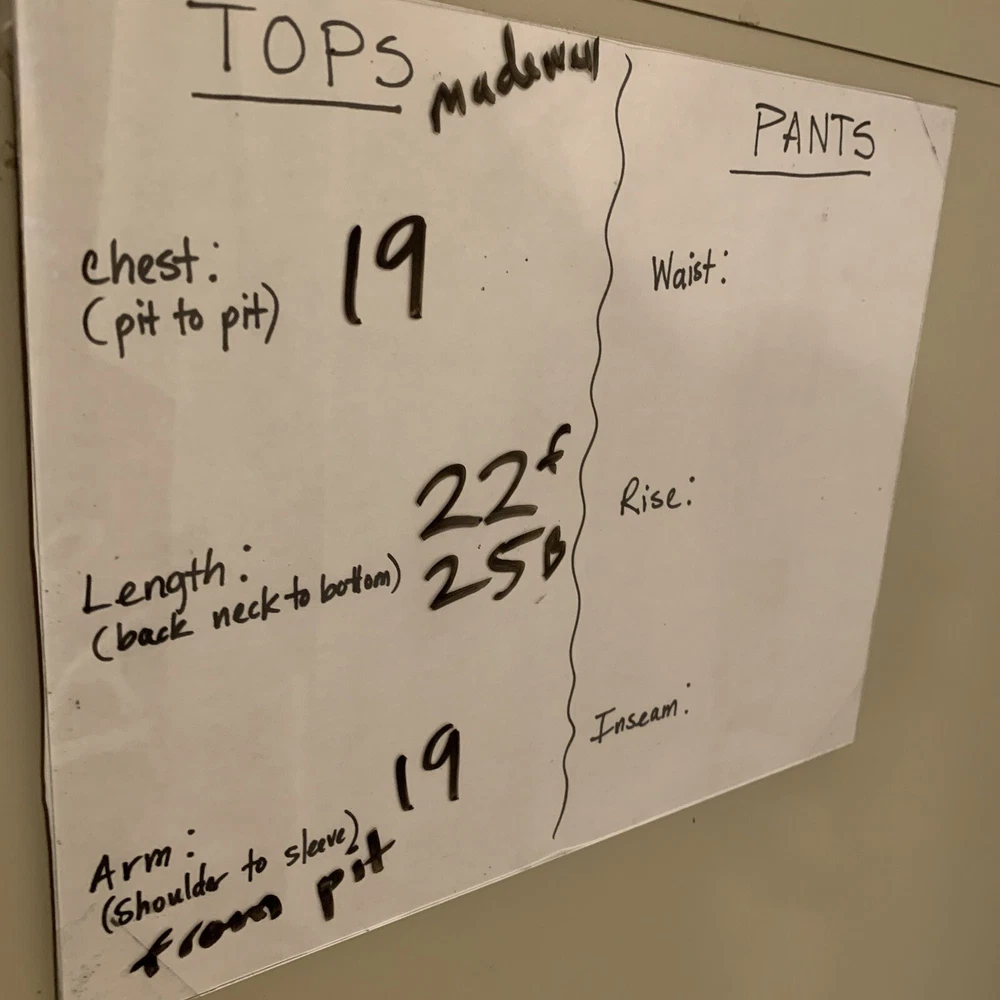 TOPS madewell
chest: 19
(pit to pit)
22 f
Length:
(back neck to bottom) 25 B
19
Arm:
(Shoulder to sleeve)
from pit
PANTS
Waist:
Rise:
Inseam: